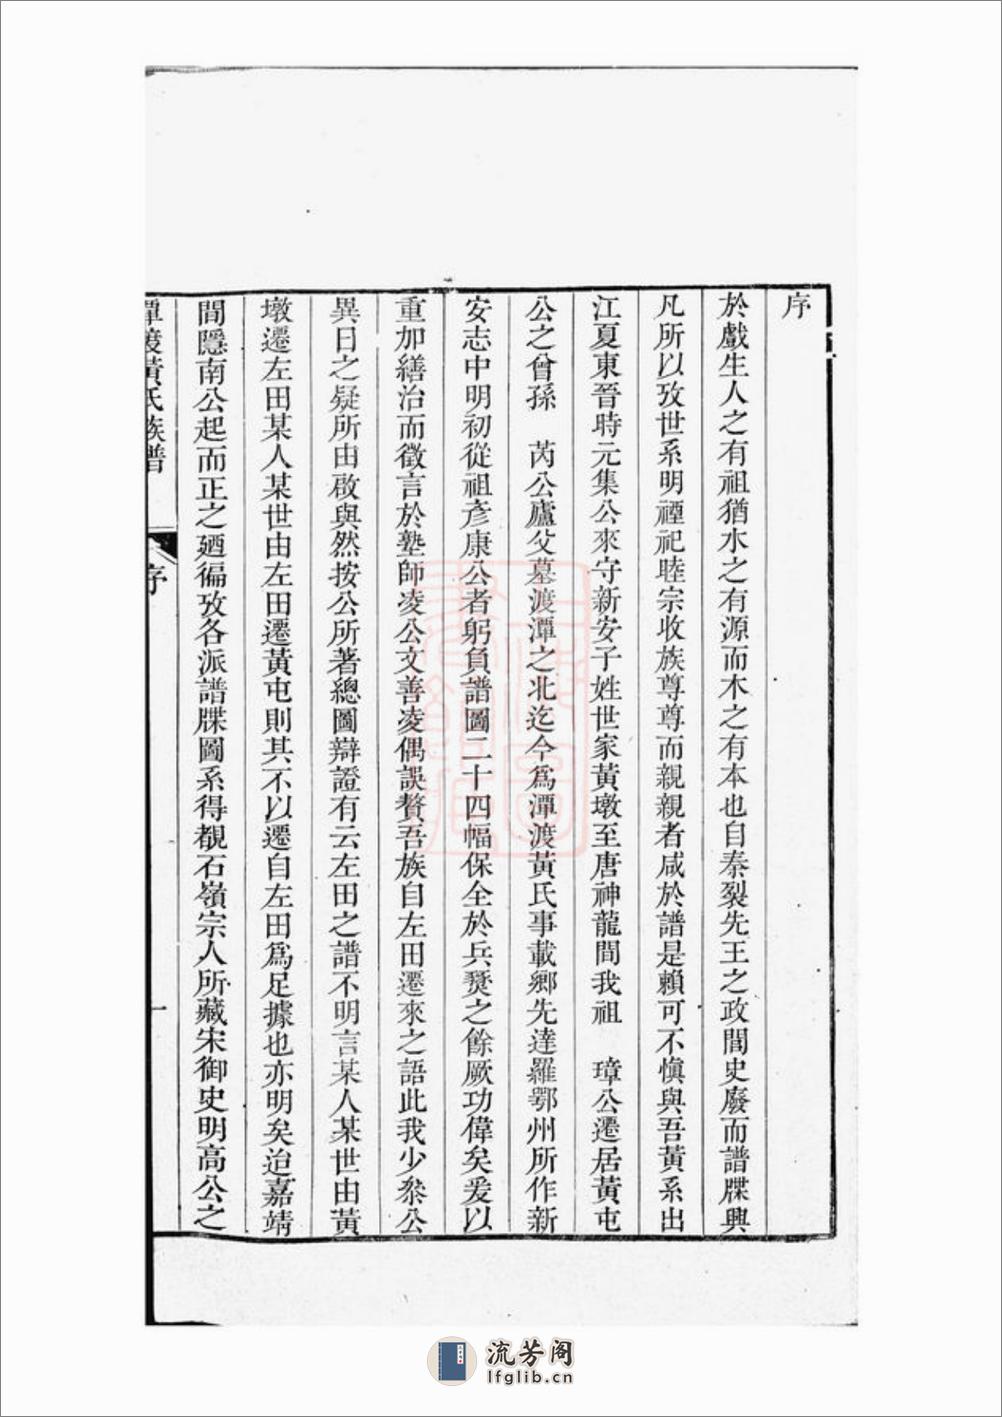 序
於戲生人之有祖猶水之有源而木之有本也自秦裂先王之政閭史廢而譜牒興
凡所以攷世系明禋祀睦宗收族尊尊而親親者咸於譜是賴可不慎與吾黃系出
江夏東晉時元集公來守新安子姓世家黃墩至唐神龍間我祖　璋公遷居黃屯
公之曾孫　芮公廬父墓渡潭之北迄今爲潭渡黃氏事載鄉先達羅鄂州所作新
安志中明初從祖彥康公者躬負譜圖二十四幅保全於兵燹之餘厥功偉矣爰以
重加繕治而徵言於塾師凌公文善凌偶誤贅吾族自左田遷來之語此我少參公
異日之疑所由啟與然按公所著總圖辯證有云左田之譜不明言某人某世由黃
墩遷左田某人某世由左田遷黃屯則其不以遷自左田爲足據也亦明矣迨嘉靖
間隱南公起而正之廼徧攷各派譜牒圖系得覩石嶺宗人所藏宋御史明高公之
潭渡黃氏族譜
序
一
流芳阁
lfglib.cn